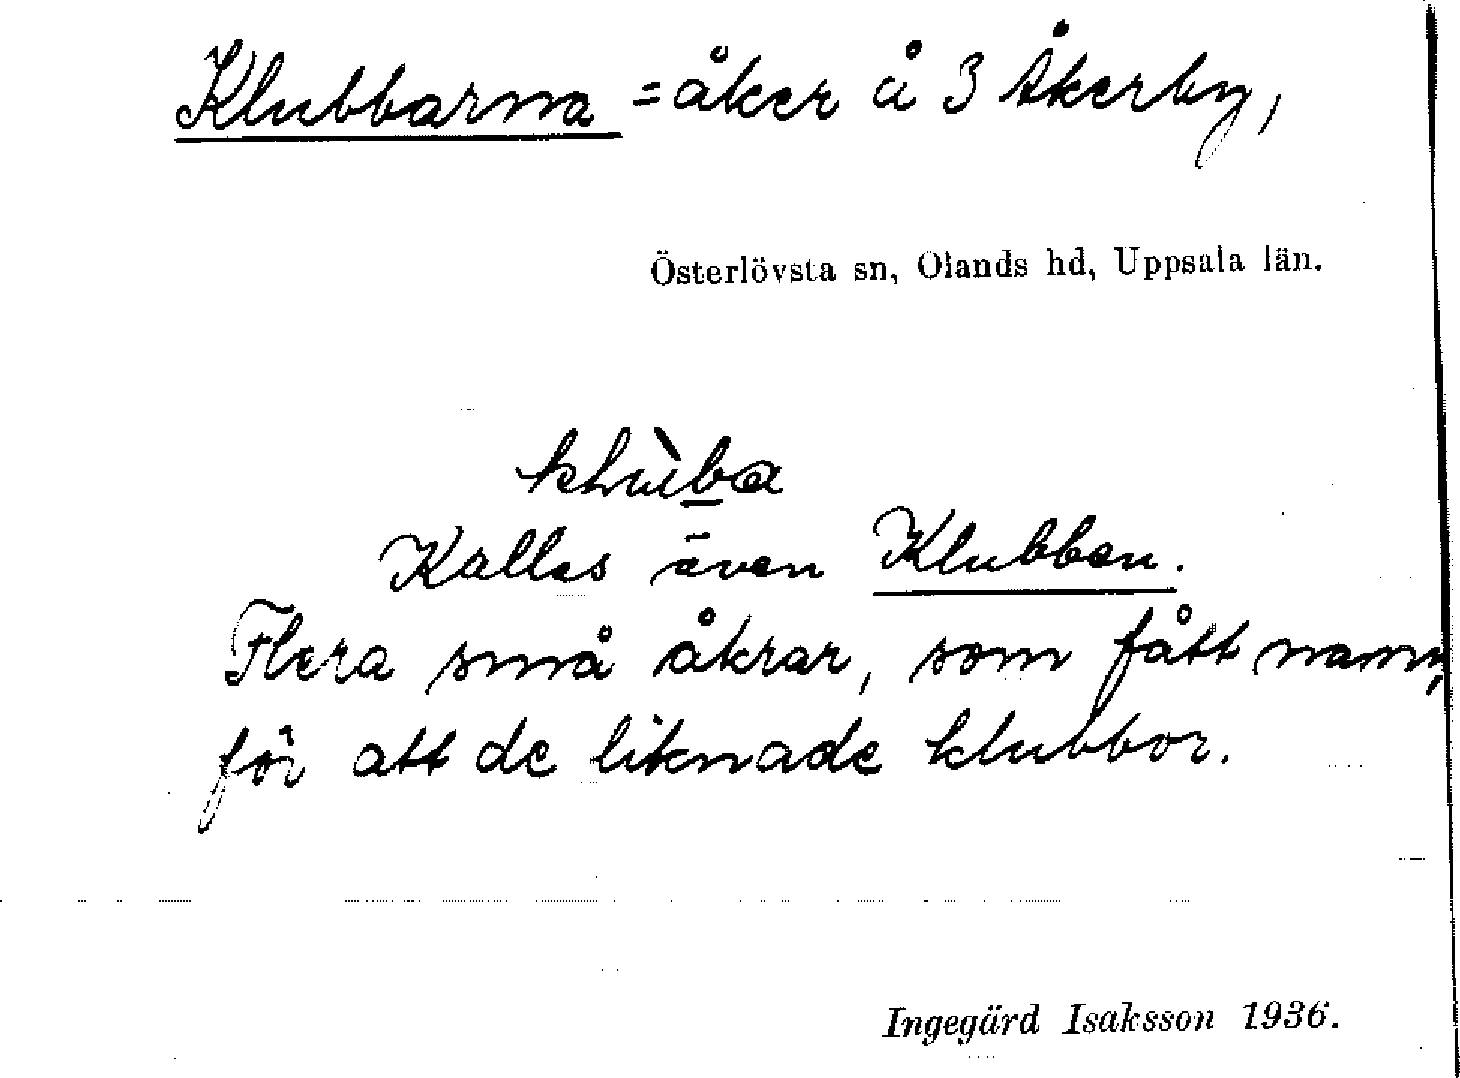 Klubbarna = åker å 3 Åkerby,
Österlövsta sn, Olands hd, Uppsala län.
Kallas även Klubben.
Flera små åkrar, som fått namn,
för att de liknade klubbor.
Ingegärd Isaksson 1936.